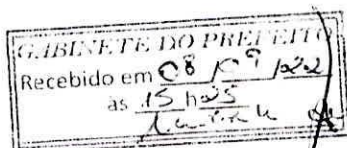 GABINETE DO PREFEITO
Recebido em 08 / 09 / 2022
às 15 h 25